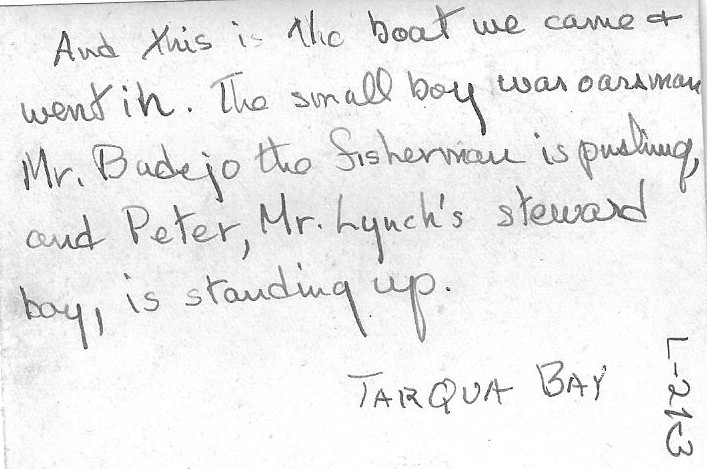 And this is the boat we came +
went in. The small boy was oarsman
Mr. Badejo the fisherman is pushing,
and Peter, Mr. Lynch's steward
boy, is standing up.
TARQUA BAY
L-21-3